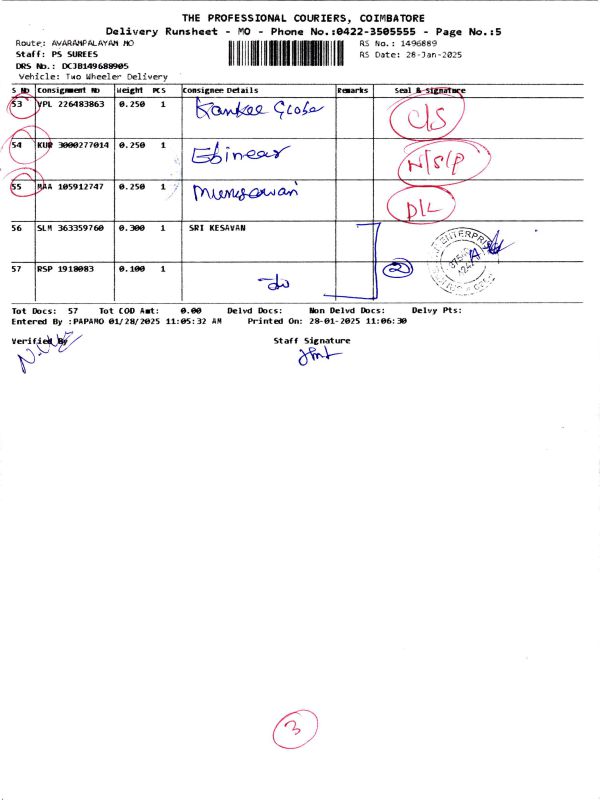 THE PROFESSIONAL COURIERS, COIMBATORE
Delivery Runsheet - MO - Phone No.:0422-3505555 - Page No.:5
Route: AVARAMPALAYAM MO
RS No.: 1496889
Staff: PS SUREES
RS Date: 28-Jan-2025
DRS No.: DCJB149688905
Vehicle: Two Wheeler Delivery
S No Consignment No Weight PCS Consignee Details Remarks Seal & Signature
53 VPL 226483863 0.250 1 C/S
54 KUR 3000277014 0.250 1 N/S/P
55 MAA 105912747 0.250 1 D/L
56 SLM 363359760 0.300 1 SRI KESAVAN
57 RSP 1918083 0.100 1
2
Tot Docs: 57 Tot COD Amt: 0.00 Delvd Docs: Non Delvd Docs: Delvy Pts:
Entered By :PAPAMO 01/28/2025 11:05:32 AM Printed On: 28-01-2025 11:06:30
Verified By Staff Signature
3